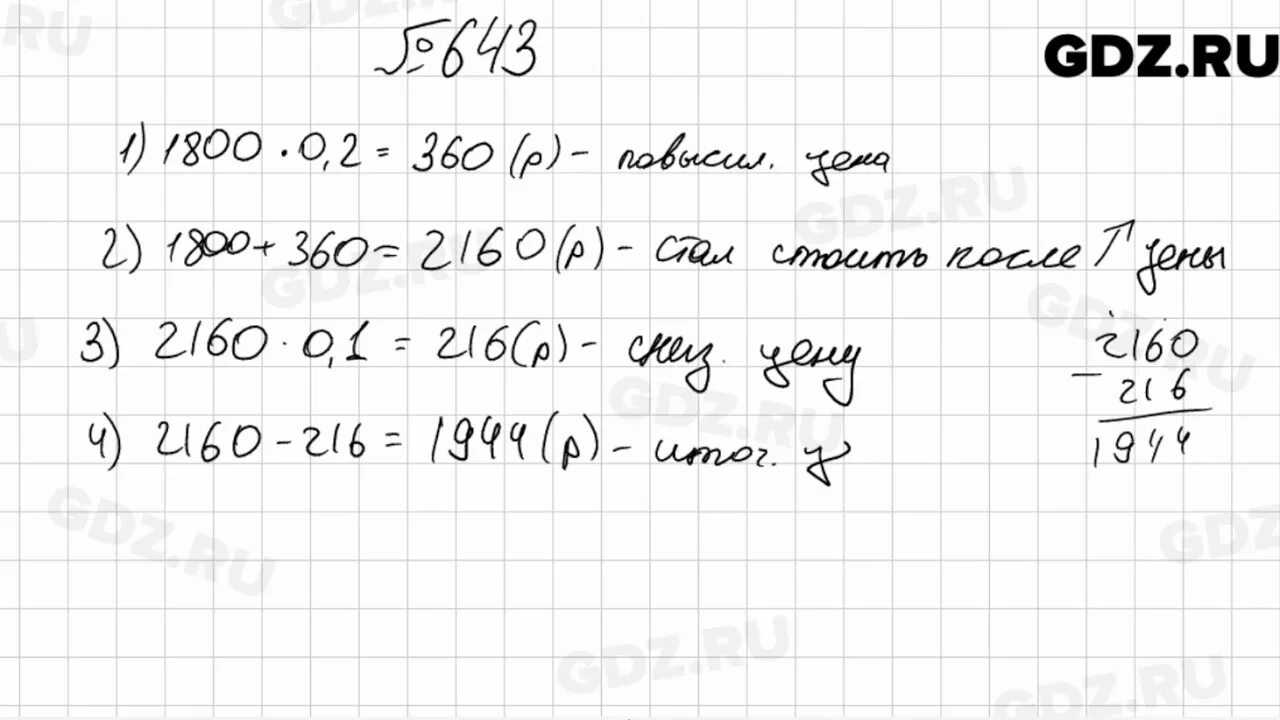 №643
GDZ.RU
1) 1800 · 0,2 = 360 (р) - повысил. цена
2) 1800 + 360 = 2160 (р) - стал стоить после ↑ цены
3) 2160 · 0,1 = 216 (р) - сниз. цену
2160
- 216
1944
4) 2160 - 216 = 1944 (р) - итог. ц